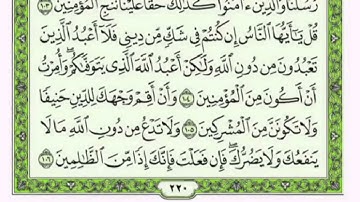 رُسُلَنَا وَالَّذِينَ ءَامَنُوا كَذَٰلِكَ حَقًّا عَلَيْنَا نُنجِ الْمُؤْمِنِينَ ١٠٣
قُلْ يَٰأَيُّهَا النَّاسُ إِن كُنتُمْ فِي شَكٍّ مِّن دِينِي فَلَا أَعْبُدُ الَّذِينَ
تَعْبُدُونَ مِن دُونِ اللَّهِ وَلَٰكِنْ أَعْبُدُ اللَّهَ الَّذِي يَتَوَفَّىٰكُمْ وَأُمِرْتُ
أَنْ أَكُونَ مِنَ الْمُؤْمِنِينَ ١٠٤ وَأَنْ أَقِمْ وَجْهَكَ لِلدِّينِ حَنِيفًا
وَلَا تَكُونَنَّ مِنَ الْمُشْرِكِينَ ١٠٥ وَلَا تَدْعُ مِن دُونِ اللَّهِ مَا لَا
يَنفَعُكَ وَلَا يَضُرُّكَ فَإِن فَعَلْتَ فَإِنَّكَ إِذًا مِّنَ الظَّالِمِينَ ١٠٦
٢٢٠